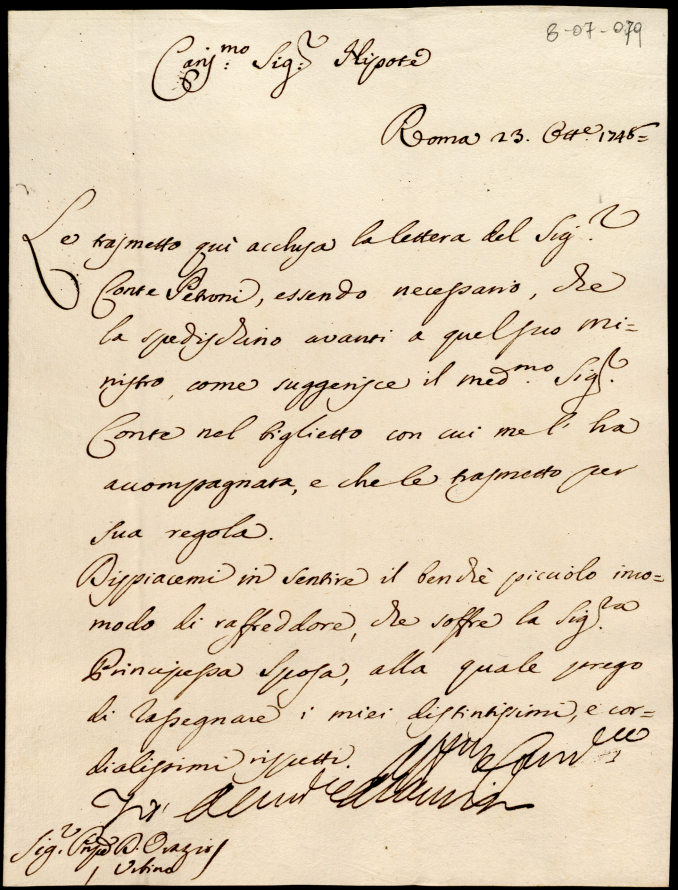 8-07-079
Cariss.mo Sig.r Nipote
Roma 23. Ott.e 1748=
Le trasmetto quì acclusa la lettera del Sig.r
Conte Petroni, essendo necessario, che
la spedischino avanti a quel suo mi=
nistro, come suggerisce il med.mo Sig.r
Conte nel biglietto con cui me l'ha
accompagnata, e che le trasmetto per
sua regola.
Dispiacemi in sentire il benchè picciolo inco=
modo di raffreddore, che soffre la Sig.ra
Principessa Sposa, alla quale prego
di rassegnare i miei distintissimi, e cor=
dialissimi rispetti.
Sig.r Prnpe D. Orazio
Urbino